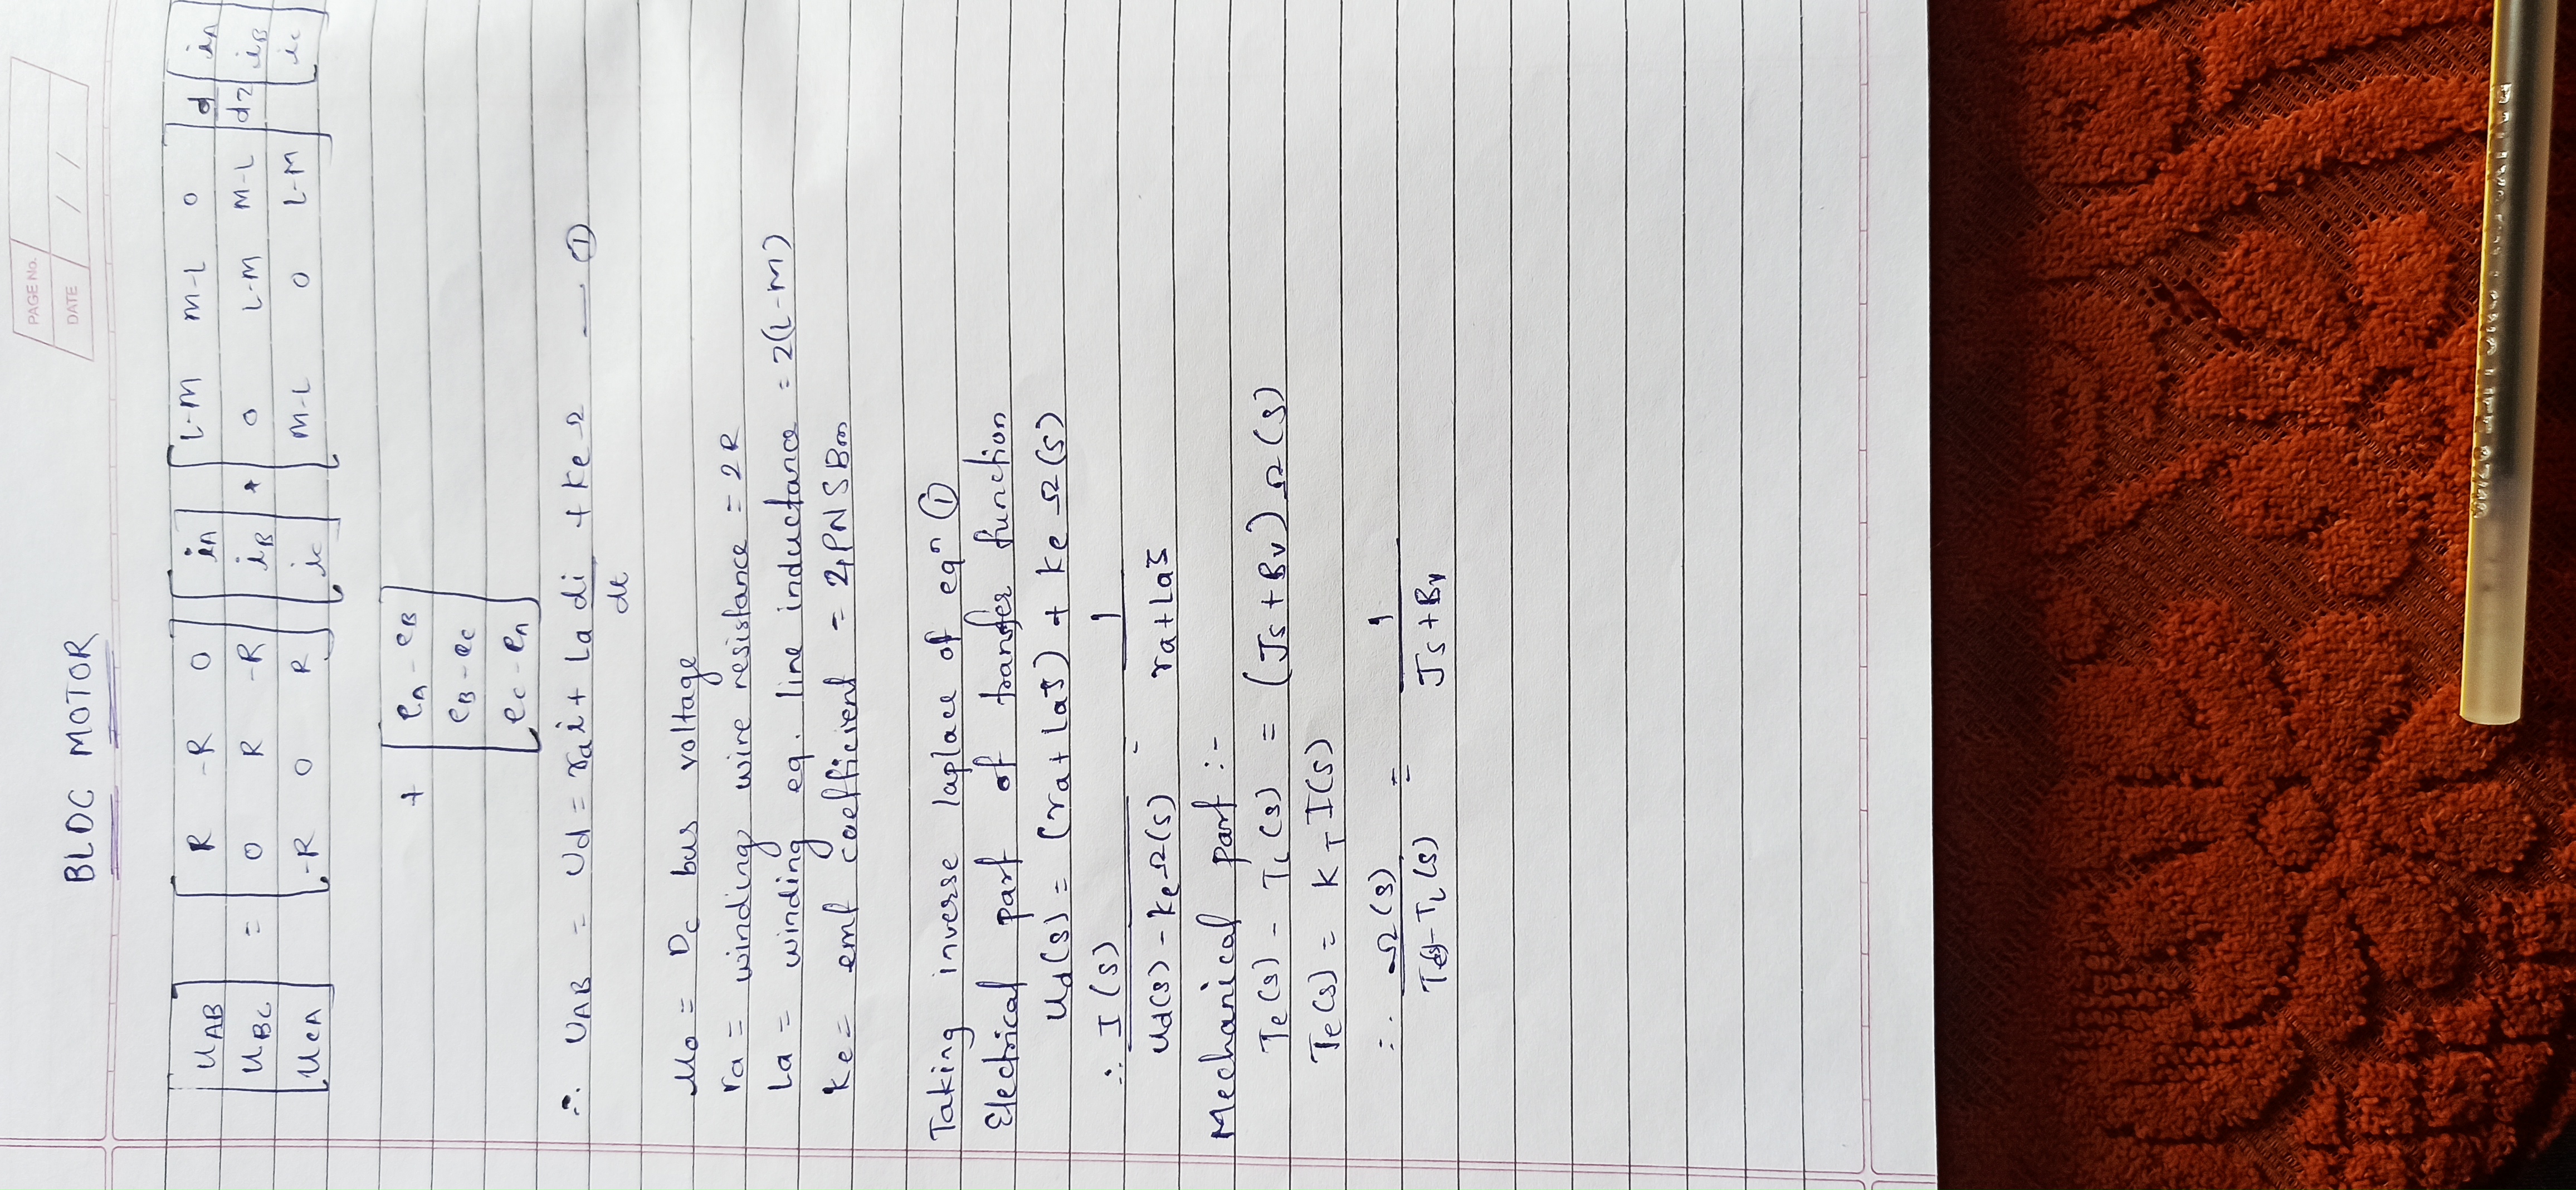 BLDC MOTOR
PAGE No.
DATE / /
[UAB] = [R -R 0] [iA] + [L-M M-L 0] d [iA]
[UBC] [0 R -R] [iB] [0 L-M M-L] dt [iB]
[UCA] [-R 0 R] [iC] [M-L 0 L-M] [iC]
+ [eA - eB]
[eB - eC]
[eC - eA]
∴ UAB = Ud = rai + La di/dt + Ke Ω — ①
Ud = Dc bus voltage
ra = windings wire resistance = 2R
La = winding eq. line inductance = 2(L-M)
Ke = emf coefficient = 2,PNSBm
Taking inverse laplace of eqn ①
Electrical part of transfer function
Ud(s) = (ra + Las) + Ke Ω(s)
∴ I(s) / Ud(s) - ke Ω(s) = 1 / ra + Las
Mechanical part :-
Te(s) - TL(s) = (Js + Bv) Ω(s)
Te(s) = KT I(s)
∴ Ω(s) / Te(s) - TL(s) = 1 / Js + Bv